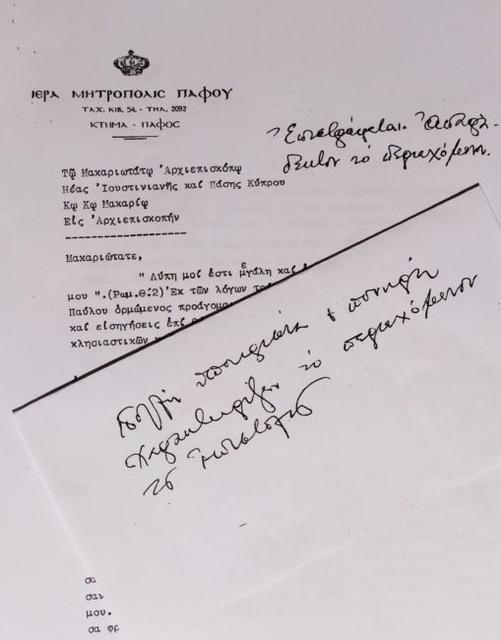 ΙΕΡΑ ΜΗΤΡΟΠΟΛΙΣ ΠΑΦΟΥ
ΤΑΧ. ΚΙΒ. 54 - ΤΗΛ. 2092
ΚΤΗΜΑ - ΠΑΦΟΣ
Ἐπιστρέφεται. Ἀπαρά-
δεκτον τὸ περιεχόμενον.
Τῷ Μακαριωτάτῳ Ἀρχιεπισκόπῳ
Νέας Ἰουστινιανῆς καί Πάσης Κύπρου
Κῳ Κῳ Μακαρίῳ
Εἰς Ἀρχιεπισκοπήν
Μακαριώτατε,
" Λύπη μοί ἐστι μεγάλη καί
μου ".(Ρωμ.Θ:2) Ἐκ τῶν λόγων
Παύλου ὁρμώμενος προάγομα
καί εἰσηγήσεις ἐπί
κλησιαστικῶν
πολλὴ ὑποκρισία + πονηρία
χαρακτηρίζει τὸ περιεχόμενον
τῆς ἐπιστολῆς
σα
σαν
μου.
σα φρ